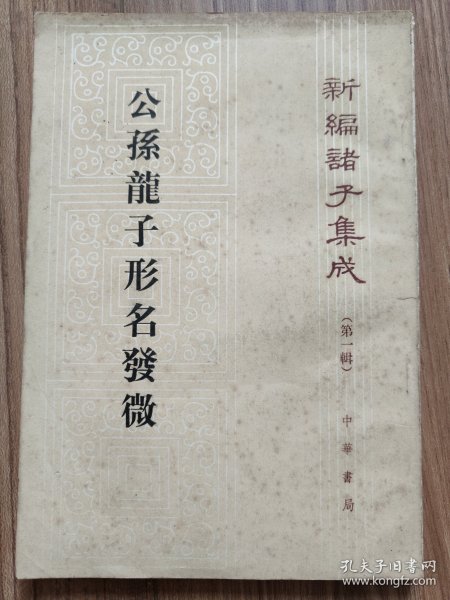 新編諸子集成
（第一輯）
中華書局
公孫龍子形名發微
孔夫子旧书网
www.kongfz.com